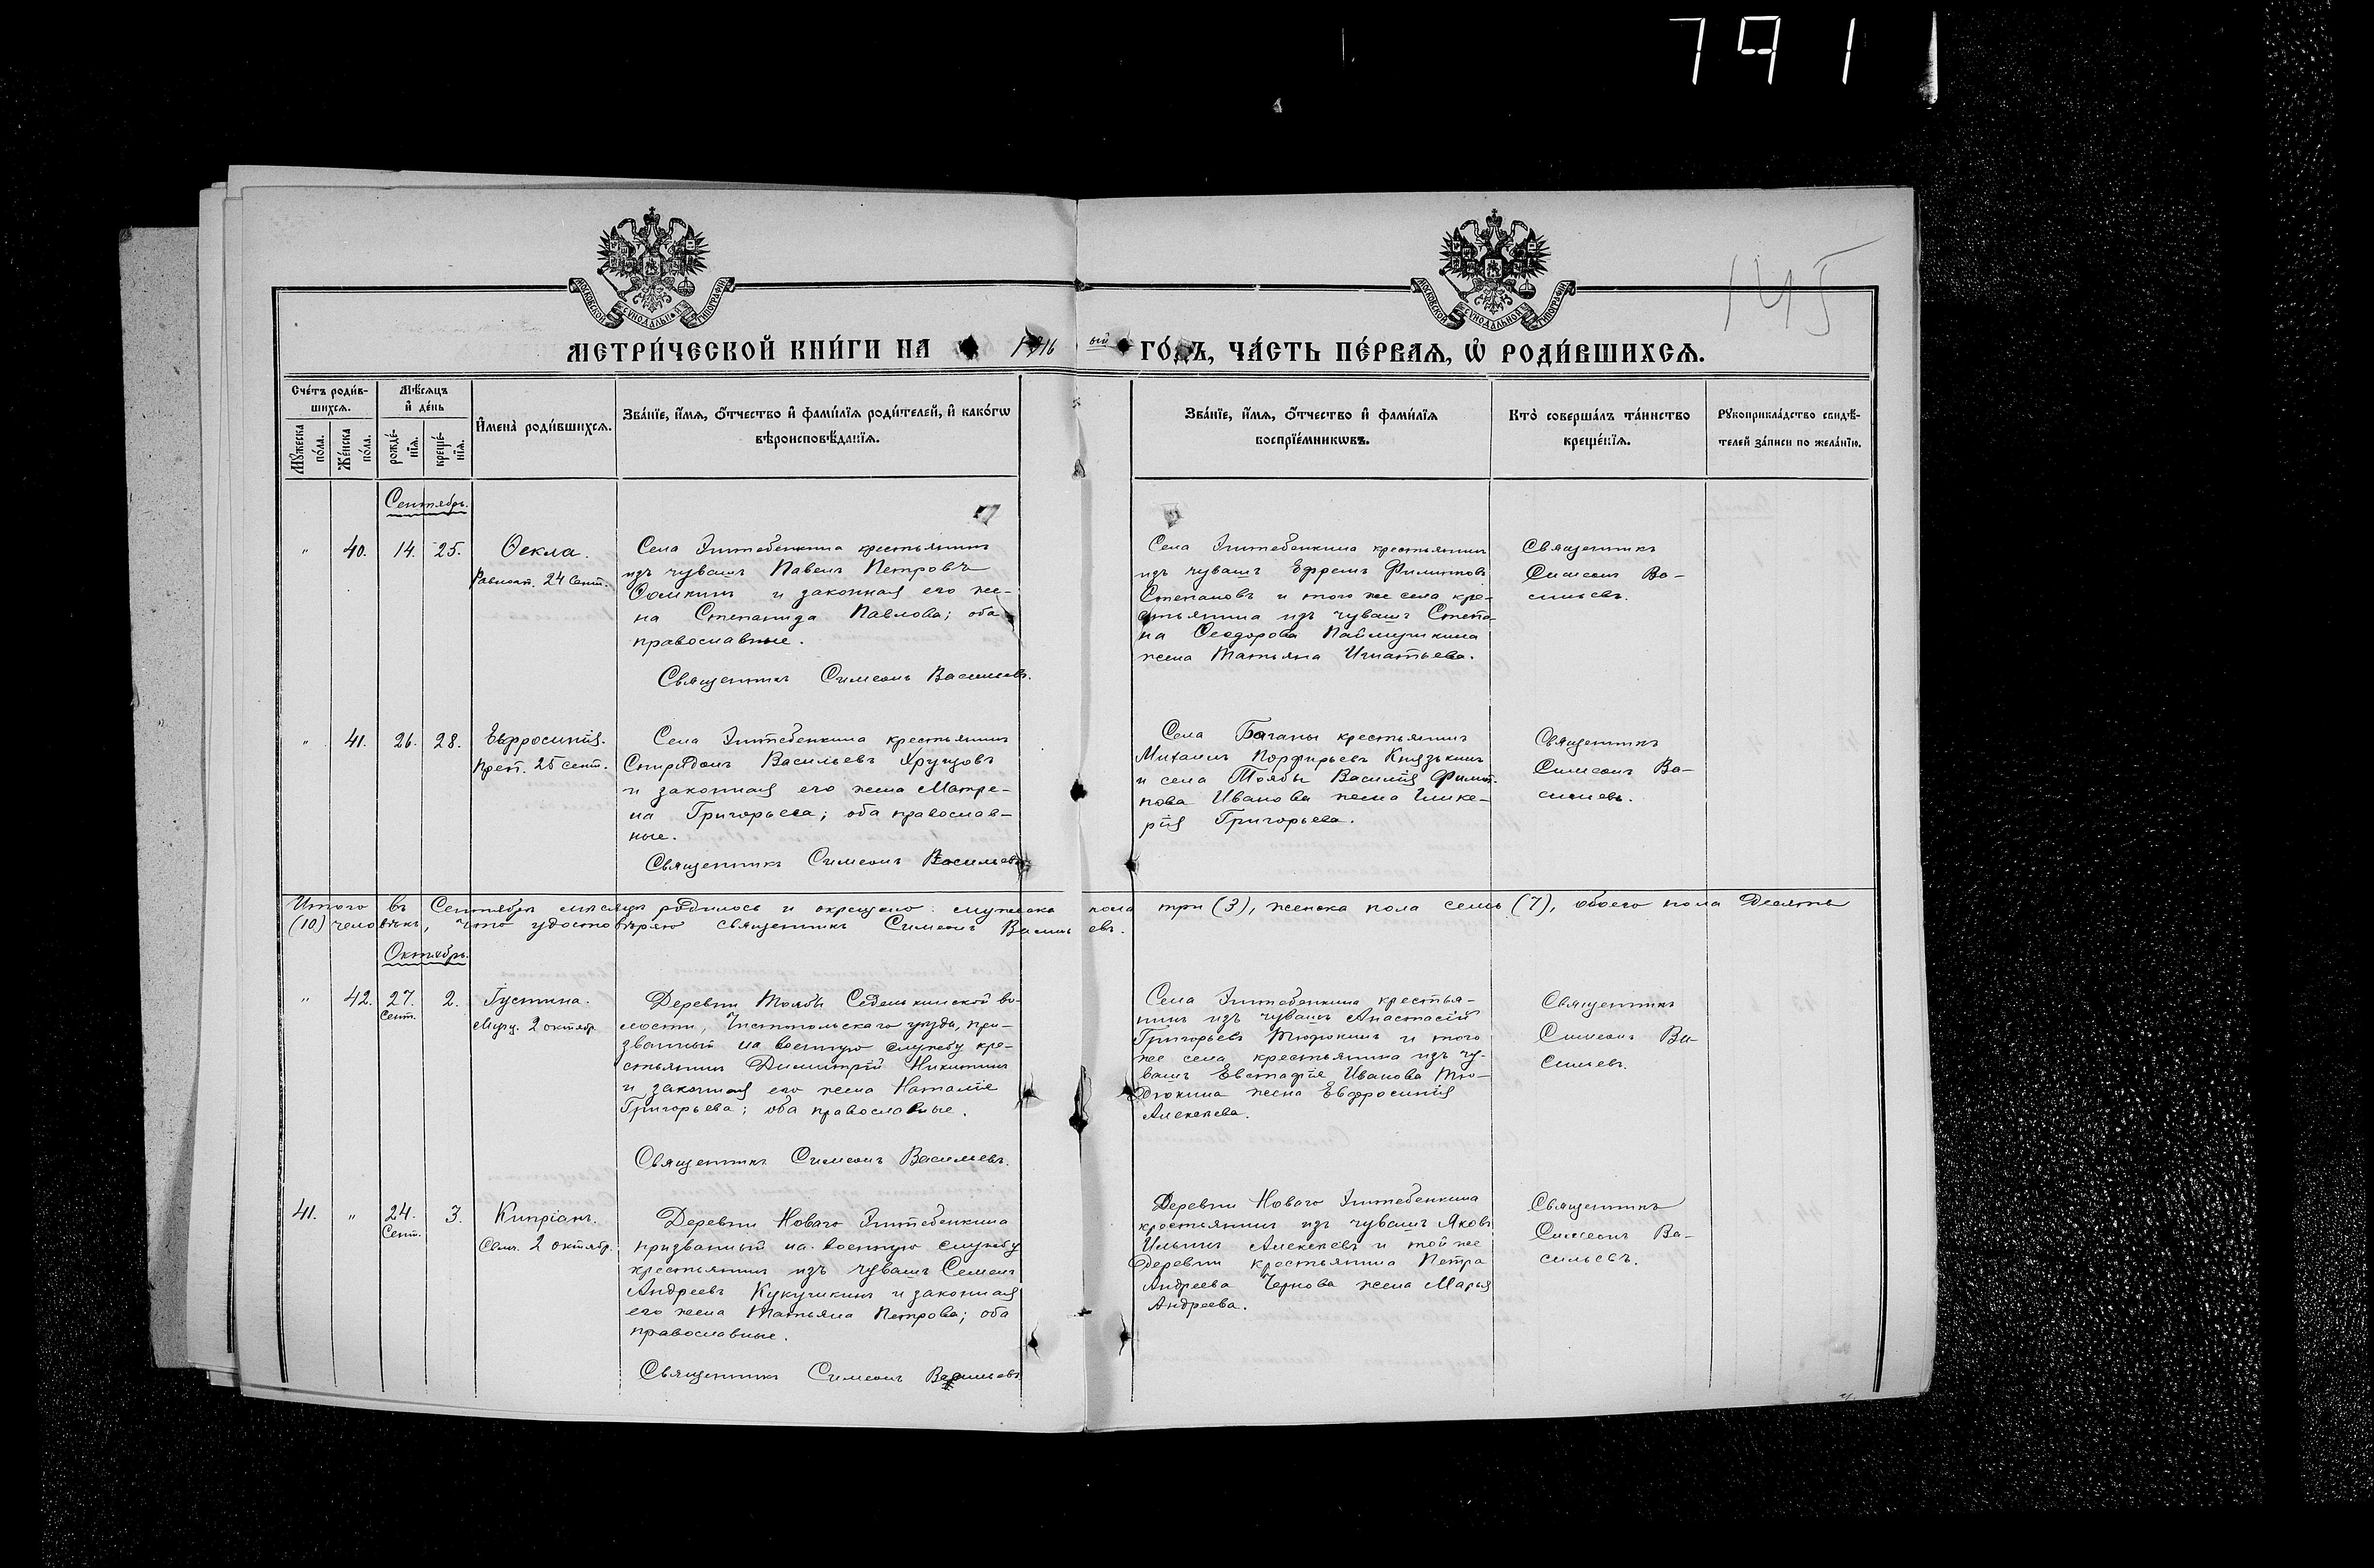 791
145
МОСКОВСКОЙ СУНОДАЛЬНОЙ ТИПОГРАФІИ
МОСКОВСКОЙ СУНОДАЛЬНОЙ ТИПОГРАФІИ
МЕТРИ́ЧЕСКОЙ КНИ́ГИ НА 1916 ый ГО́ДЪ, ЧА́СТЬ ПЕ́РВАѦ, Ѽ РОДИ́ВШИХСѦ.
Сче́тъ роди́в-
шихсѧ.
Мꙋ́жеска по́ла.
Же́нска по́ла.
Мѣ́сѧцъ
и҆ де́нь
рожде́-
нїѧ.
креще́-
нїѧ.
И҆мена̀ роди́вшихсѧ.
Зва́нїе, и҆́мѧ, ѻ҆́тчество и҆ фами́лїѧ роди́телей, и҆ како́гѡ
вѣроисповѣ́данїѧ.
Зва́нїе, и҆́мѧ, ѻ҆́тчество и҆ фами́лїѧ
воспрїе́мникѡвъ.
Кто̀ соверша́лъ та́инство
креще́нїѧ.
Рꙋкоприкла́дство свидѣ́-
телей за́писи по жела́нїю.
Сентябрь.
" 40. 14. 25.
Ѳекла.
Равноап. 24 Сент.
Села Эштебенкина крестьянинъ
изъ чувашъ Павелъ Петровъ
Ѳомкинъ и законная его же-
на Степанида Павлова; оба
православные.
Священникъ Симеонъ Васильевъ.
Села Эштебенкина крестьянинъ
изъ чувашъ Ефремъ Филипповъ
Степановъ и того же села кре-
стьянина изъ чувашъ Степа-
на Ѳеодорова Паймушкина
жена Татьяна Игнатьева.
Священникъ
Симеонъ Ва-
сильевъ.
" 41. 26. 28.
Евфросинія.
Преп. 25 сент.
Села Эштебенкина крестьянинъ
Спиридонъ Васильевъ Хрущовъ
и законная его жена Матре-
на Григорьева; оба православ-
ные.
Священникъ Симеонъ Васильевъ
Села Баганы крестьянинъ
Михаилъ Порфирьевъ Князькинъ
и села Тоябы Василія Филип-
пова Иванова жена Глике-
рія Григорьева.
Священникъ
Симеонъ Ва-
сильевъ.
Итого въ Сентябрѣ мѣсяцѣ родилось и окрещено: мужска пола три (3), женска пола семь (7), обоего пола десять
(10) человѣкъ, что удостовѣряю священникъ Симеонъ Васильевъ.
Октябрь.
" 42. 27. 2.
Сент.
Густина.
Муч. 2 октябр.
Деревни Тоябы Седелькинской во-
лости, Чистопольскаго уѣзда, при-
званный на военную службу кре-
стьянинъ Димитрій Никитинъ
и законная его жена Наталіе
Григорьева; оба православные.
Священникъ Симеонъ Васильевъ.
Села Эштебенкина крестья-
нинъ изъ чувашъ Анастасій
Григорьевъ Тюрюкинъ и того
же села крестьянина изъ чу-
вашъ Евстафіе Иванова
жена Евфросинія
Алексѣева.
Священникъ
Симеонъ Ва-
сильевъ.
41. " 24. 3.
Сент.
Кипріанъ.
Свмч. 2 октябр.
Деревни Новаго Эштебенкина
призванный на военную службу
крестьянинъ изъ чувашъ Семенъ
Андреевъ Кукушкинъ и законная
его жена Татьяна Петрова; оба
православные.
Священникъ Симеонъ Васильевъ
Деревни Новаго Эштебенкина
крестьянинъ изъ чувашъ Яковъ
Ильинъ Алексѣевъ и той же
деревни крестьянина Петра
Андреева Чернова жена Марья
Андреева.
Священникъ
Симеонъ Ва-
сильевъ.